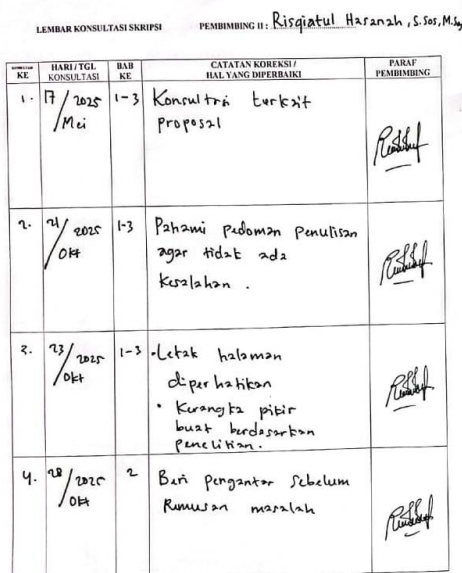 LEMBAR KONSULTASI SKRIPSI PEMBIMBING II : Risqiatul Hasanah, S.Sos, M.Sos
KE HARI / TGL KONSULTASI BAB KE CATATAN KOREKSI / HAL YANG DIPERBAIKI PARAF PEMBIMBING
1. 17/Mei 2025 1-3 Konsultasi terkait
proposal
2. 21/Okt 2025 1-3 Pahami pedoman penulisan
agar tidak ada
kesalahan .
3. 23/Okt 2025 1-3 • Letak halaman
diperhatikan
• Kerangka pikir
buat berdasarkan
penelitian.
4. 28/Okt 2025 2 Beri pengantar sebelum
Rumusan masalah